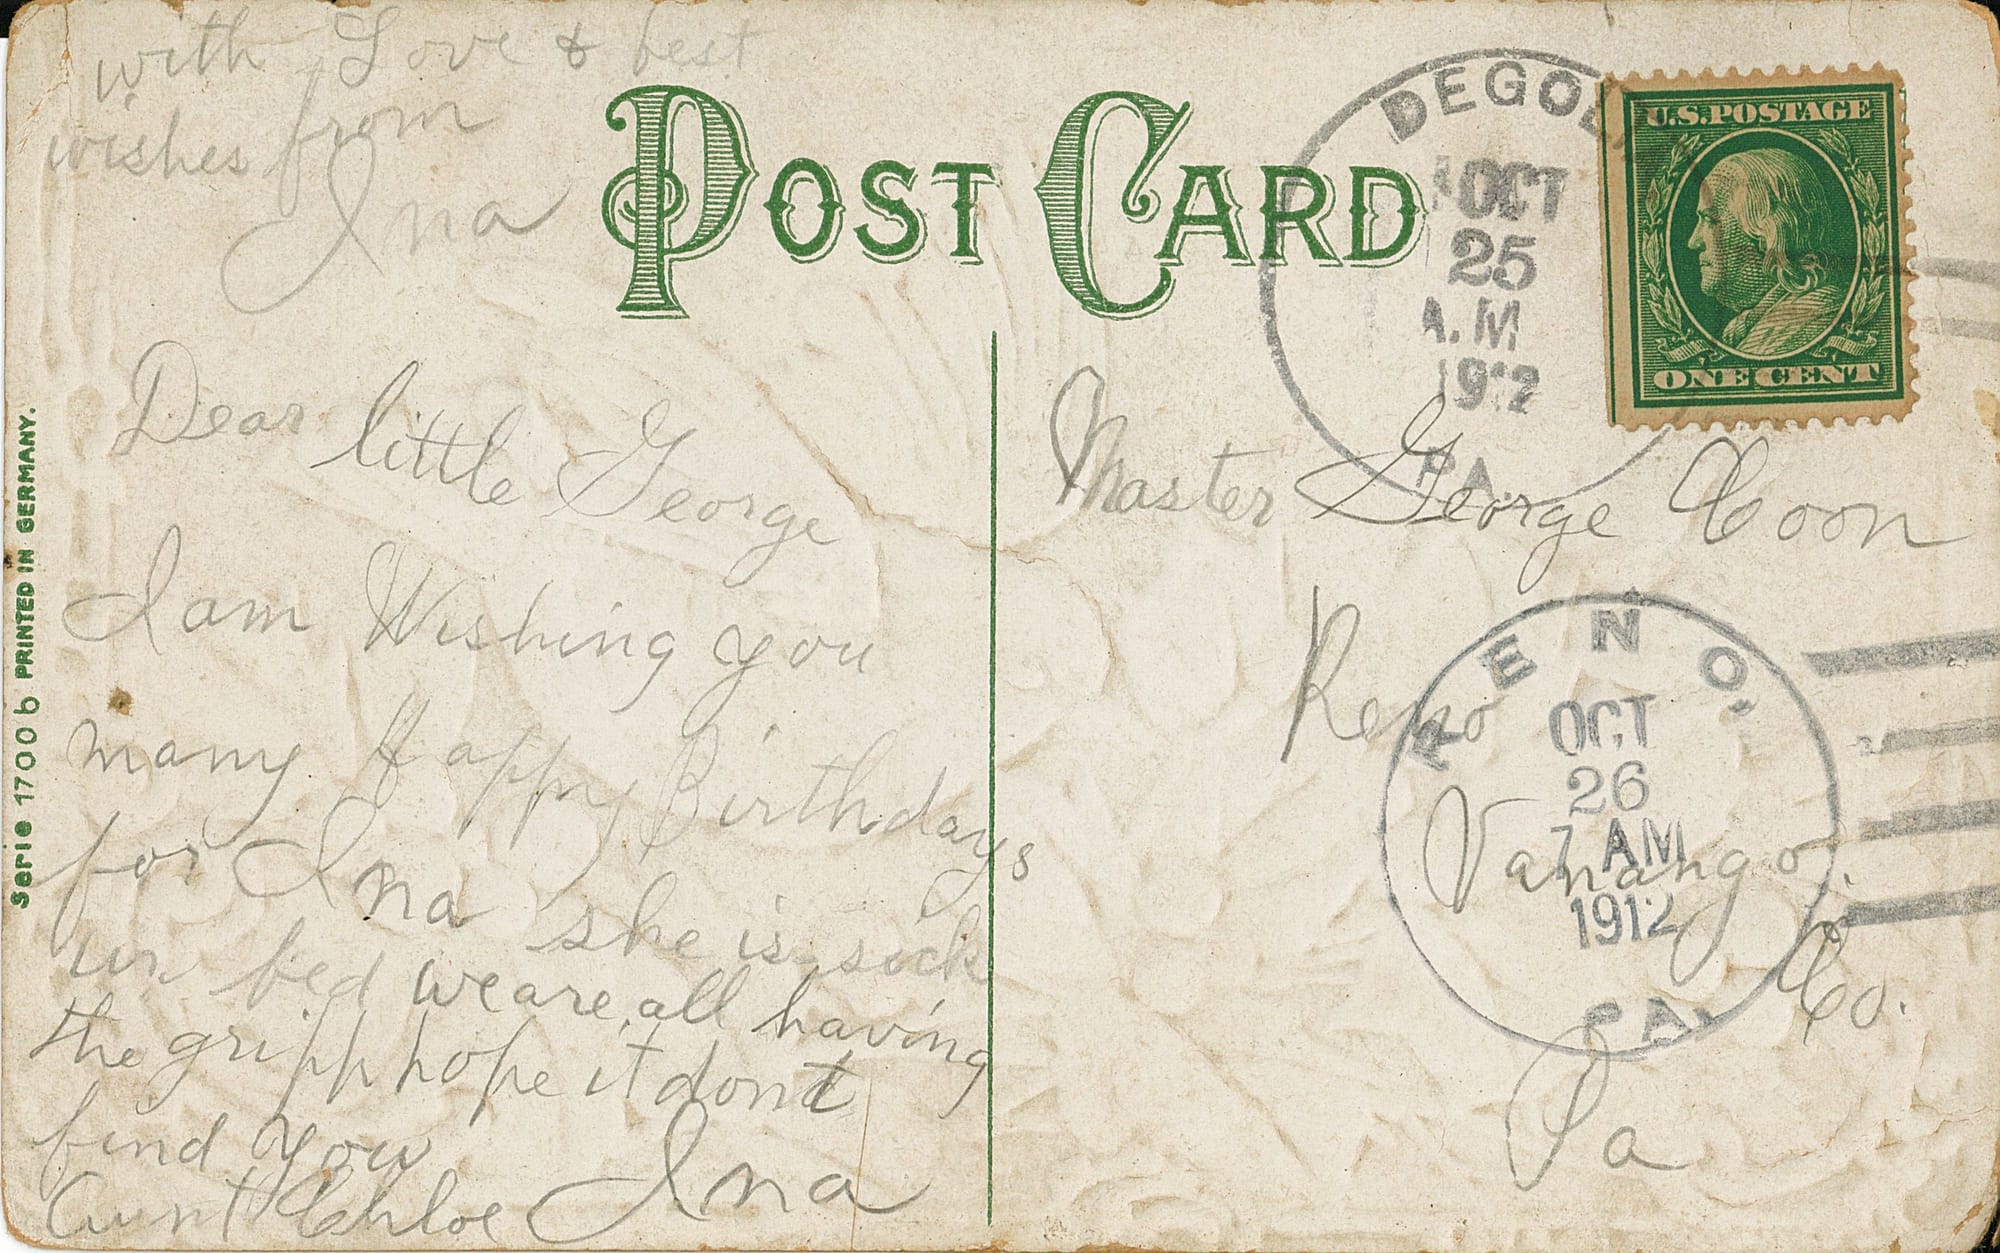 with Love & best
wishes from
Ina
POST CARD
DEGOL
OCT
25
A.M
1912
PA.
U.S. POSTAGE
ONE CENT
Dear little George
I am Wishing you
many Happy Birthdays
for Ina she is sick
in bed we are all having
the gripp hope it dont
find you
Aunt Chloe Ina
Master George Coon
Reno
Vanango
Co.
Pa
RENO,
OCT
26
7 AM
1912
PA.
Serie 1700 b PRINTED IN GERMANY.